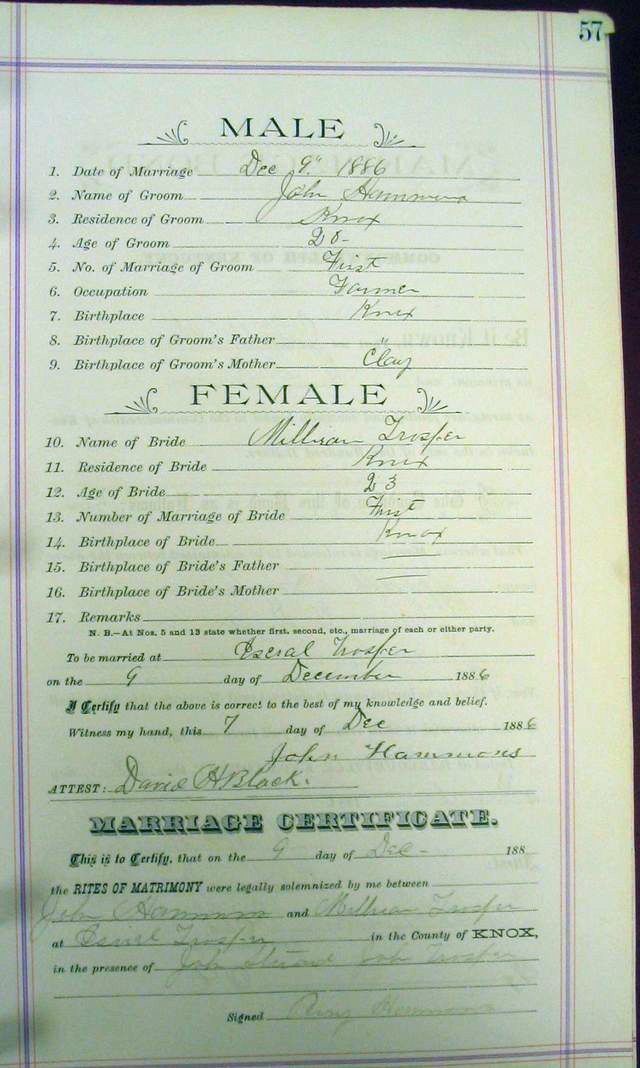 57
MALE
1. Date of Marriage Dec 9" 1886
2. Name of Groom John Hammons
3. Residence of Groom Knox
4. Age of Groom 20-
5. No. of Marriage of Groom First
6. Occupation Farmer
7. Birthplace Knox
8. Birthplace of Groom's Father "
9. Birthplace of Groom's Mother Clay
FEMALE
10. Name of Bride Trosper
11. Residence of Bride Knox
12. Age of Bride 23
13. Number of Marriage of Bride First
14. Birthplace of Bride Knox
15. Birthplace of Bride's Father
16. Birthplace of Bride's Mother
17. Remarks
N. B.—At Nos. 5 and 13 state whether first, second, etc., marriage of each or either party.
To be married at Trosper
on the 9 day of December 1886
I Certify that the above is correct to the best of my knowledge and belief.
Witness my hand, this 7 day of Dec 1886
John Hammons
ATTEST: David H Black.
MARRIAGE CERTIFICATE.
This is to Certify, that on the 9 day of Dec- 188
the RITES OF MATRIMONY were legally solemnized by me between
John Hammons and Trosper
at Trosper in the County of KNOX,
in the presence of Job Trosper
Signed Hammons